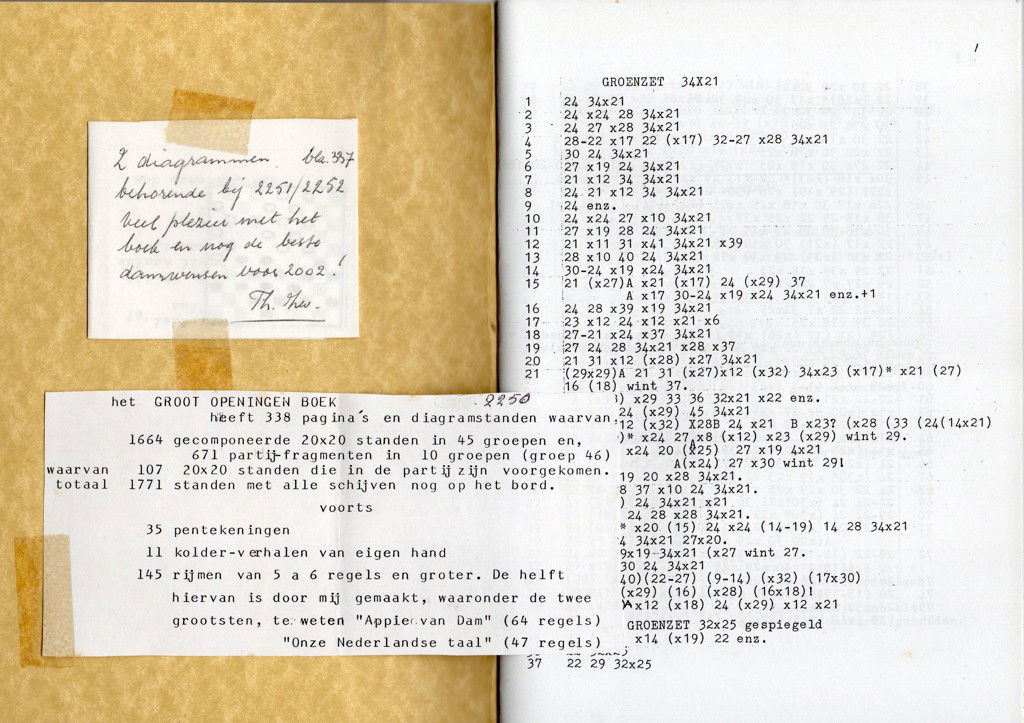 2 diagrammen blz. 337
behorende bij 2251/2252
veel plezier met het
boek en nog de beste
damwensen voor 2002!
Th.
het GROOT OPENINGEN BOEK 2250
heeft 338 pagina's en diagramstanden waarvan
1664 gecomponeerde 20x20 standen in 45 groepen en,
671 partij-fragmenten in 10 groepen (groep 46)
waarvan 107 20x20 standen die in de partij zijn voorgekomen.
totaal 1771 standen met alle schijven nog op het bord.
voorts
35 pentekeningen
11 kolder-verhalen van eigen hand
145 rijmen van 5 a 6 regels en groter. De helft
hiervan is door mij gemaakt, waaronder de twee
grootsten, te weten "Appie van Dam" (64 regels)
"Onze Nederlandse taal" (47 regels)
1
GROENZET 34X21
1 24 34x21
2 24 x24 28 34x21
3 24 27 x28 34x21
4 28-22 x17 22 (x17) 32-27 x28 34x21
5 30 24 34x21
6 27 x19 24 34x21
7 21 x12 34 34x21
8 24 21 x12 34 34x21
9 24 enz.
10 24 x24 27 x10 34x21
11 27 x19 28 24 34x21
12 21 x11 31 x41 34x21 x39
13 28 x10 40 24 34x21
14 30-24 x19 x24 34x21
15 21 (x27)A x21 (x17) 24 (x29) 37
A x17 30-24 x19 x24 34x21 enz.+1
16 24 28 x39 x19 34x21
17 23 x12 24 x12 x21 x6
18 27-21 x24 x37 34x21
19 27 24 28 34x21 x28 x37
20 21 31 x12 (x28) x27 34x21
21 (29x29)A 21 31 (x27)x12 (x32) 34x23 (x17)* x21 (27)
16 (18) wint 37.
) x29 33 36 32x21 x22 enz.
24 (x29) 45 34x21
12 (x32) X28B 24 x21 B x23? (x28 (33 (24(14x21)
)* x24 27 x8 (x12) x23 (x29) wint 29.
x24 20 (x25)A 27 x19 4x21
A(x24) 27 x30 wint 29!
19 20 x28 34x21.
8 37 x10 24 34x21.
) 24 34x21 x21
24 28 x28 34x21.
* x20 (15) 24 x24 (14-19) 14 28 34x21
4 34x21 27x20.
9x19 34x21 (x27 wint 27.
30 24 34x21
40)(22-27) (9-14) (x32) (17x30)
(x29) (16) (x28) (16x18)!
x12 (x18) 24 (x29) x12 x21
GROENZET 32x25 gespiegeld
x14 (x19) 22 enz.
37 22 29 32x25